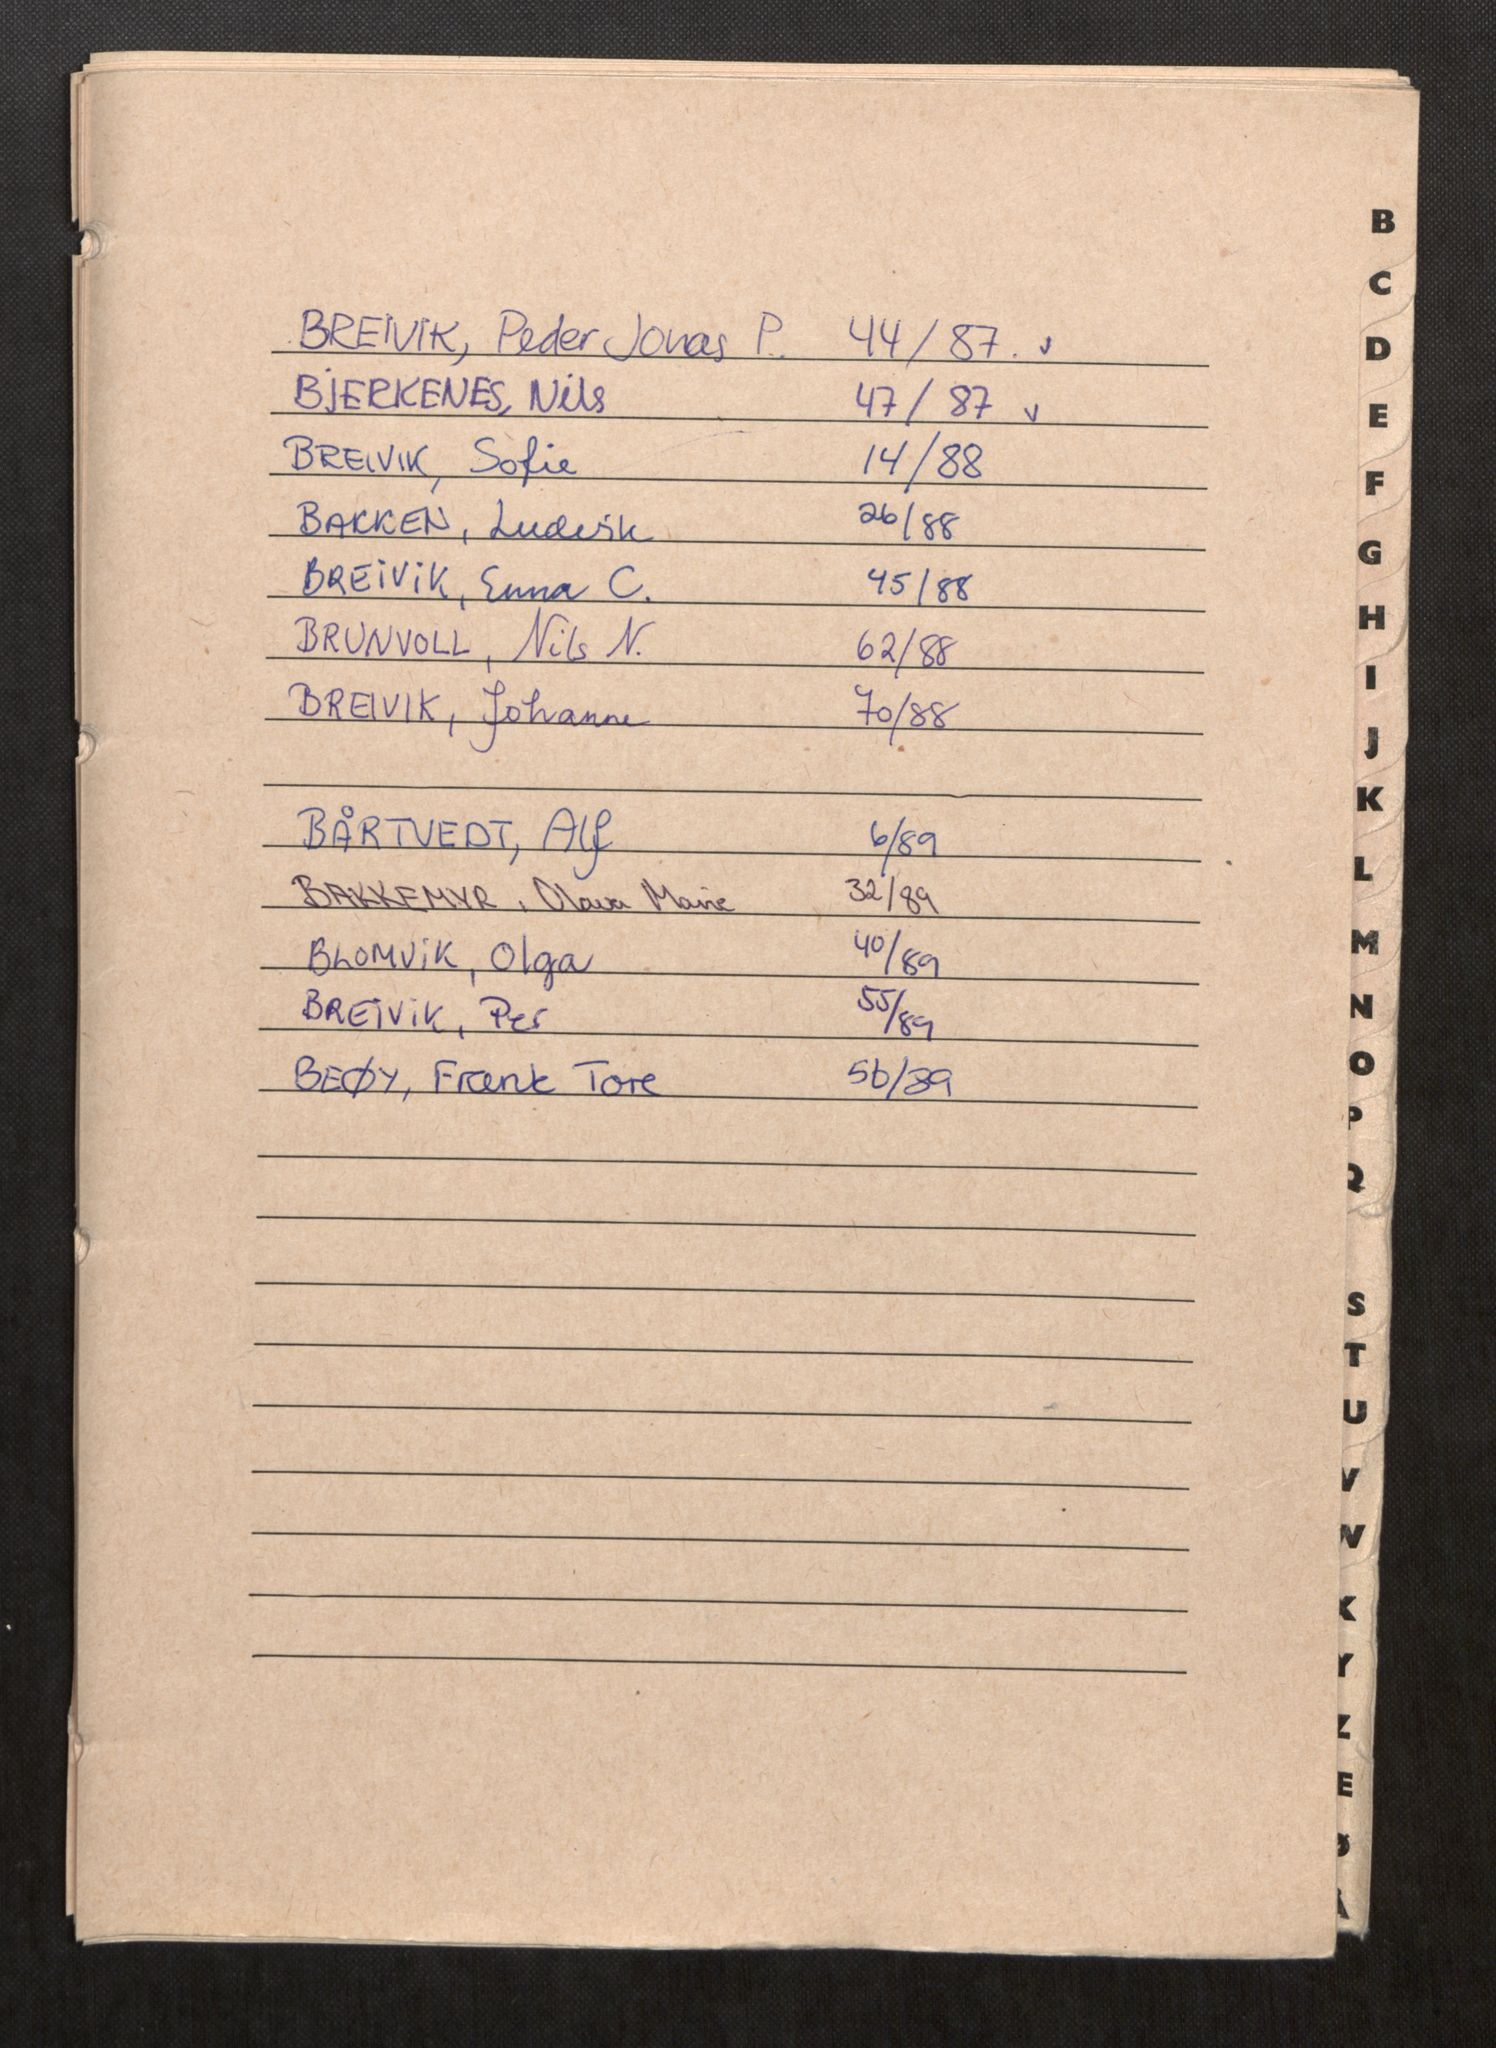 BREIVIK, Peder Jonas P. 44/87. v
BJERKENES, Nils 47/87 v
BREIVIK, Sofie 14/88
BAKKEN, Ludvik 26/88
BREIVIK, Emma C. 45/88
BRUNVOLL, Nils N. 62/88
BREIVIK, Johanne 70/88
BÅRTVEDT, Alf 6/89
BAKKEMYR, Olava Marie 32/89
BLOMVIK, Olga 40/89
BREIVIK, Per 55/89
BEØY, Frank Tore 56/89
B
C
D
E
F
G
H
I
J
K
L
M
N
O
P
Q
S
T
U
V
W
X
Y
Z
Æ
Ø
Å